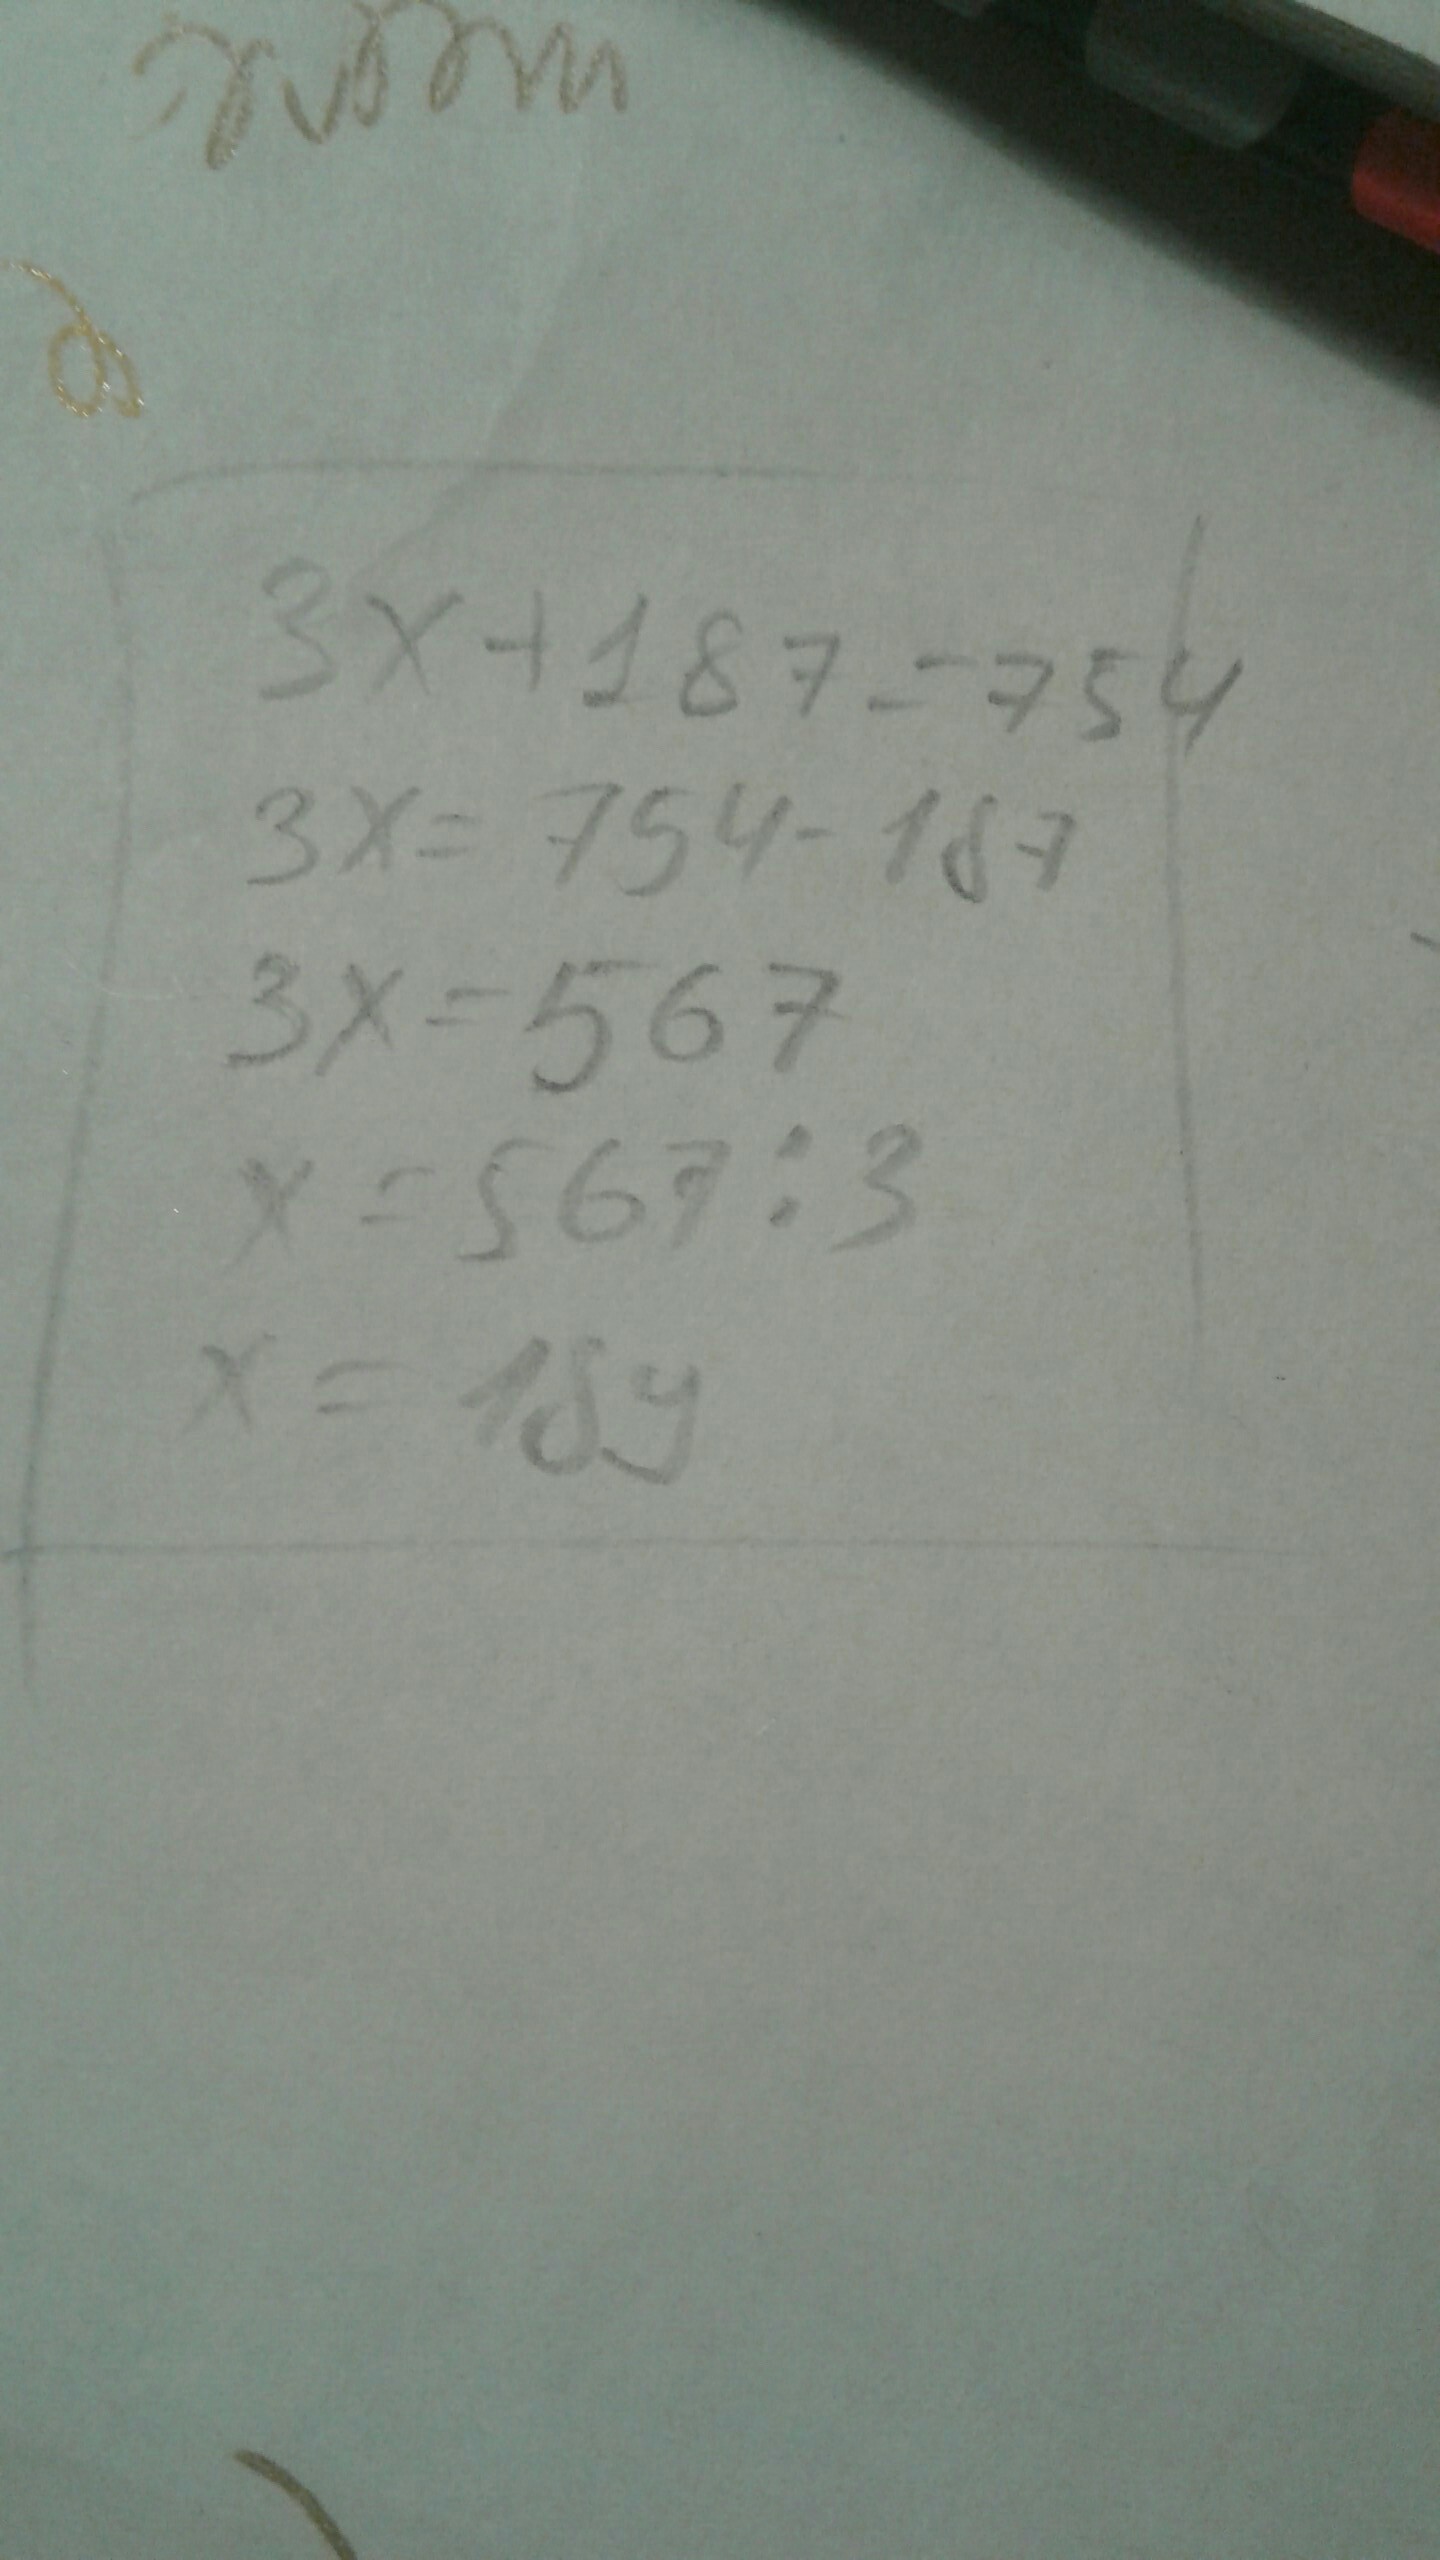 3x+187=754
3x=754-187
3x=567
x=567:3
x=189